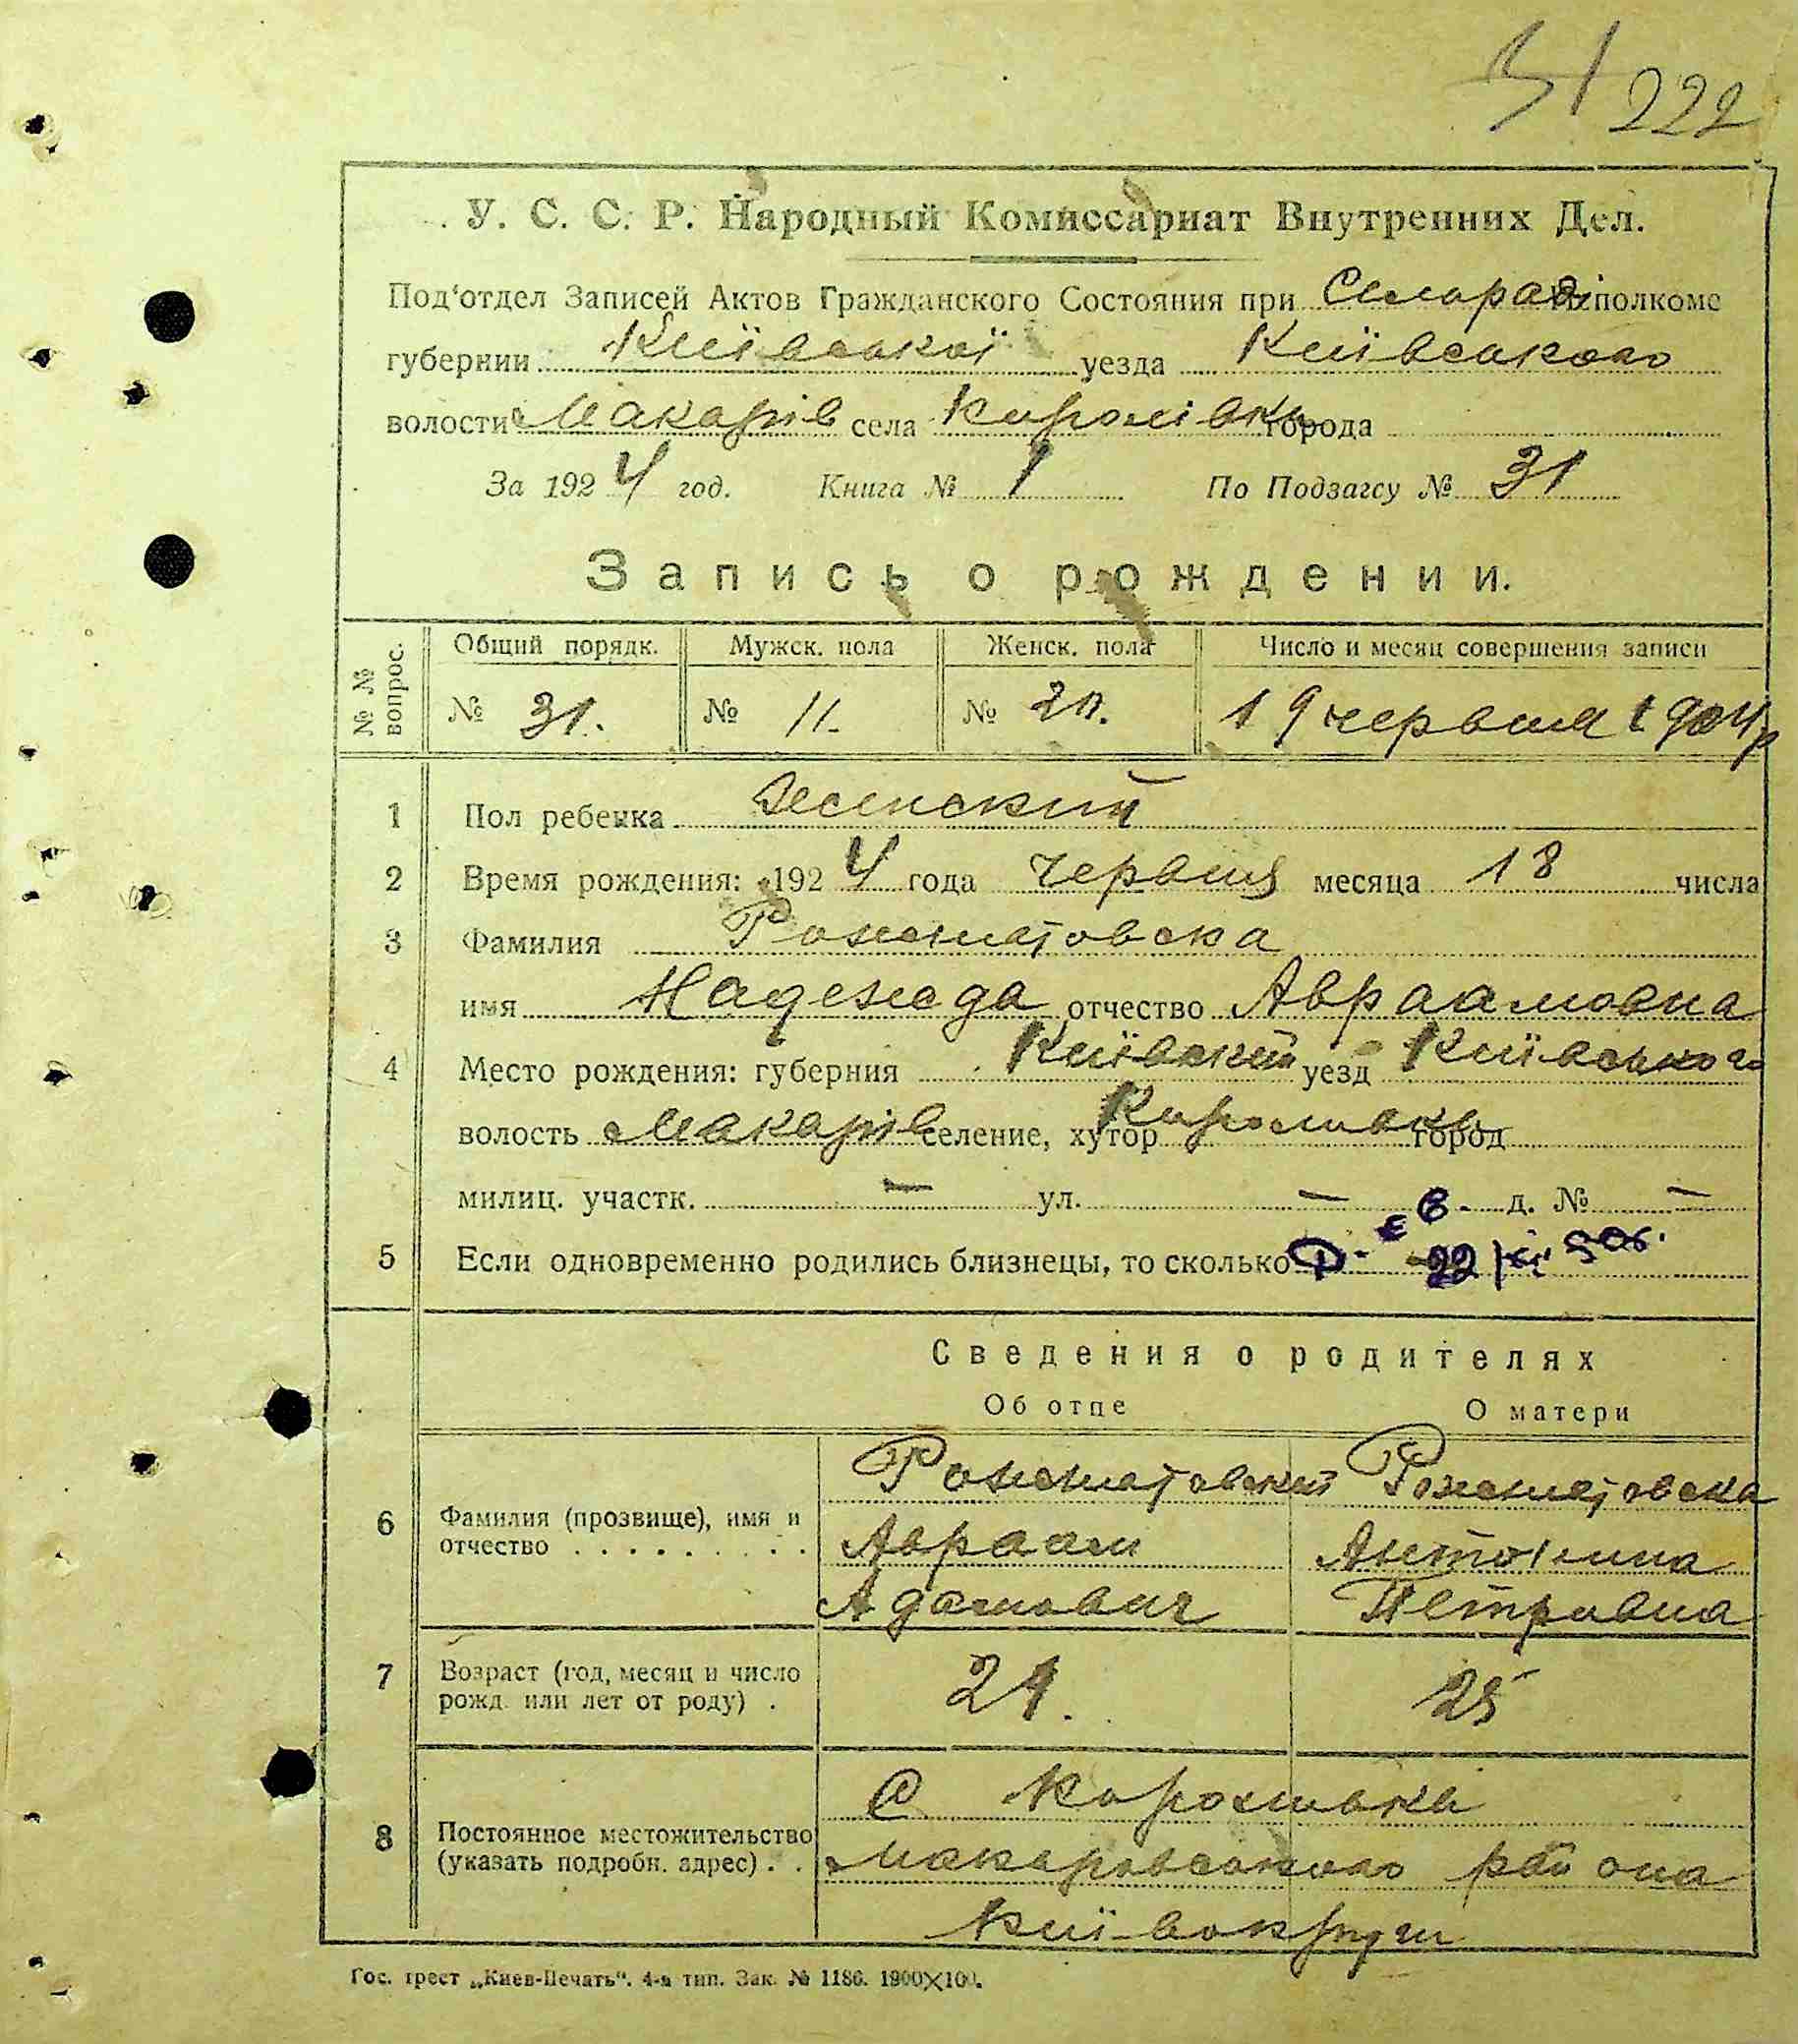 31 222
У. С. С. Р. Народный Комиссариат Внутренних Дел.
Под'отдел Записей Актов Гражданского Состояния при Сільраді исполкоме
губернии Київської уезда Київського
волости Макарів села Королівки города
За 1924 год. Книга № 1 По Подзагсу № 31
Запись о рождении.
№ № вопрос. Общий порядк. Мужск. пола Женск. пола Число и месяц совершения записи
№ 31. № 11. № 20. 19 червня 1924 р
1 Пол ребенка Женский
2 Время рождения: 1924 года червня месяца 18 числа
3 Фамилия Рожематовска
имя Надежда отчество Авраамовна
4 Место рождения: губерния Київской уезд Київського
волость Макарів селение, хутор Королівки город
милиц. участк. — ул. — д. № —
5 Если одновременно родились близнецы, то сколько
Сведения о родителях
Об отце О матери
6 Фамилия (прозвище), имя и отчество . . . . . . . . .
Рожематовский Рожематовска
Авраам Антонина
Адамович Петровна
7 Возраст (год, месяц и число рожд. или лет от роду) .
24. 25
8 Постоянное местожительство (указать подробн. адрес) . .
С Королівки
Макаровського района
Київокруги
Гос. трест „Киев-Печать“. 4-я тип. Зак. № 1186. 1900×100.